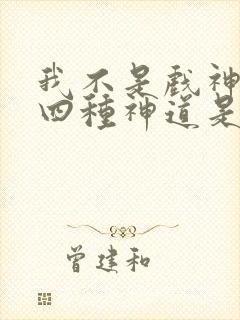 我不是戏神
四種神道是
曾建和